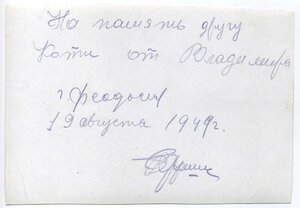 На память другу
Коти от Владимира
г Феодосия
19 августа 1949г.